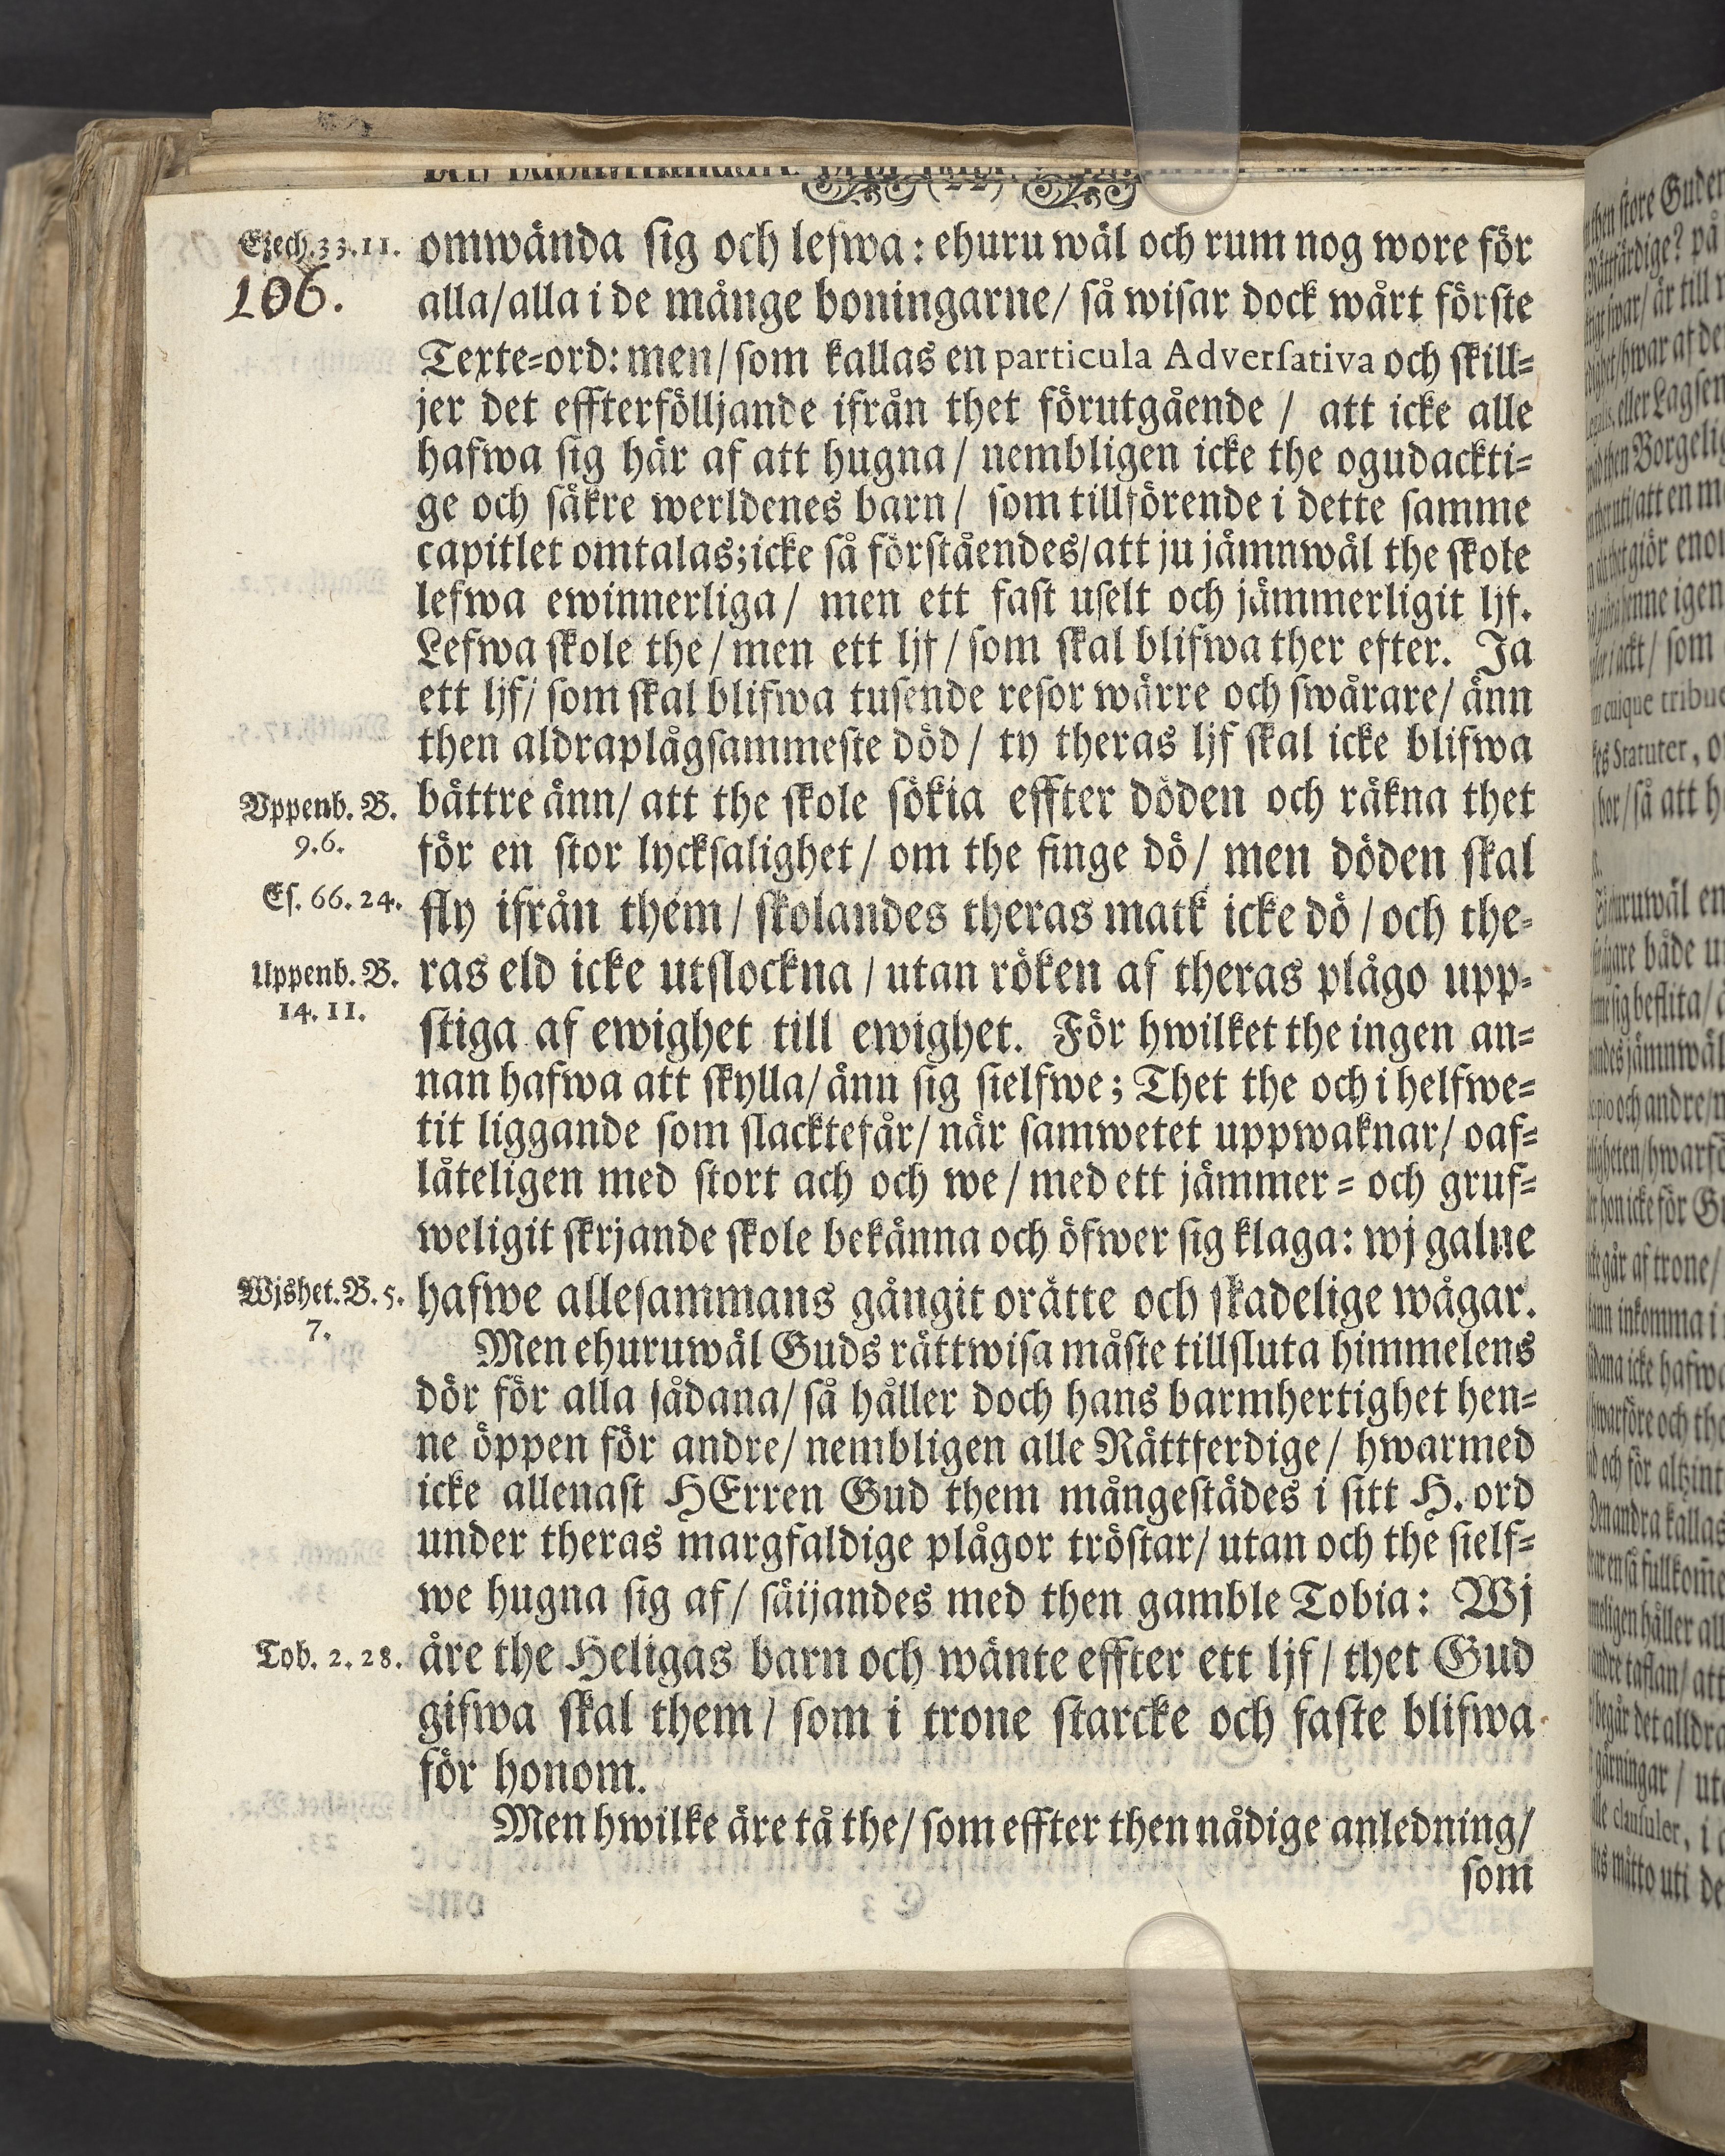 Ezech. 33. 11.
106.
omwända sig och lefwa: ehuru wäl och rum nog wore för
alla/ alla i de månge boningarne/ så wisar dock wårt förste
Texte=ord: men/ som kallas en particula Adversativa och skill=
jer det effterfölljande ifrån thet förutgående / att icke alle
hafwa sig här af att hugna/ nembligen icke the ogudackti=
ge och säkre werldenes barn/ som tillförende i dette samme
capitlet omtalas; icke så förståendes/ att ju jämnwäl the skole
lefwa ewinnerliga/ men ett fast uselt och jämmerligit ljf.
Lefwa skole the/ men ett ljf/ som skal blifwa ther efter. Ja
ett ljf/ som skal blifwa tusende resor wärre och swårare/ änn
then aldraplågsammeste död/ ty theras ljf skal icke blifwa
Uppenb. B.
9. 6.
bättre änn/ att the skole sökia effter döden och räkna thet
för en stor lycksalighet/ om the finge dö/ men döden skal
Es. 66. 24.
fly ifrån them/ skolandes theras matk icke dö/ och the=
Uppenb. B.
14. 11.
ras eld icke utslockna / utan röken af theras plågo upp=
stiga af ewighet till ewighet. För hwilket the ingen an=
nan hafwa att skylla/ änn sig sielfwe; Thet the och i helfwe=
tit liggande som slacktefår/ när samwetet uppwaknar/ oaf=
låteligen med stort ach och we/ med ett jämmer= och gruf=
weligit skrjande skole bekänna och öfwer sig klaga: wj galne
Wjshet. B. 5.
7.
hafwe allesammans gångit orätte och skadelige wägar.
Men ehuruwäl Guds rättwisa måste tillsluta himmelens
dör för alla sådana/ så håller doch hans barmhertighet hen=
ne öppen för andre/ nembligen alle Rättferdige/ hwarmed
icke allenast HErren Gud them mångestädes i sitt H. ord
under theras margfaldige plågor tröstar/ utan och the sielf=
we hugna sig af/ säijandes med then gamble Tobia: Wj
Tob. 2. 28.
äre the Heligas barn och wänte effter ett ljf/ thet Gud
gifwa skal them/ som i trone starcke och faste blifwa
för honom.
Men hwilke äre tå the/ som effter then nådige anledning/
som